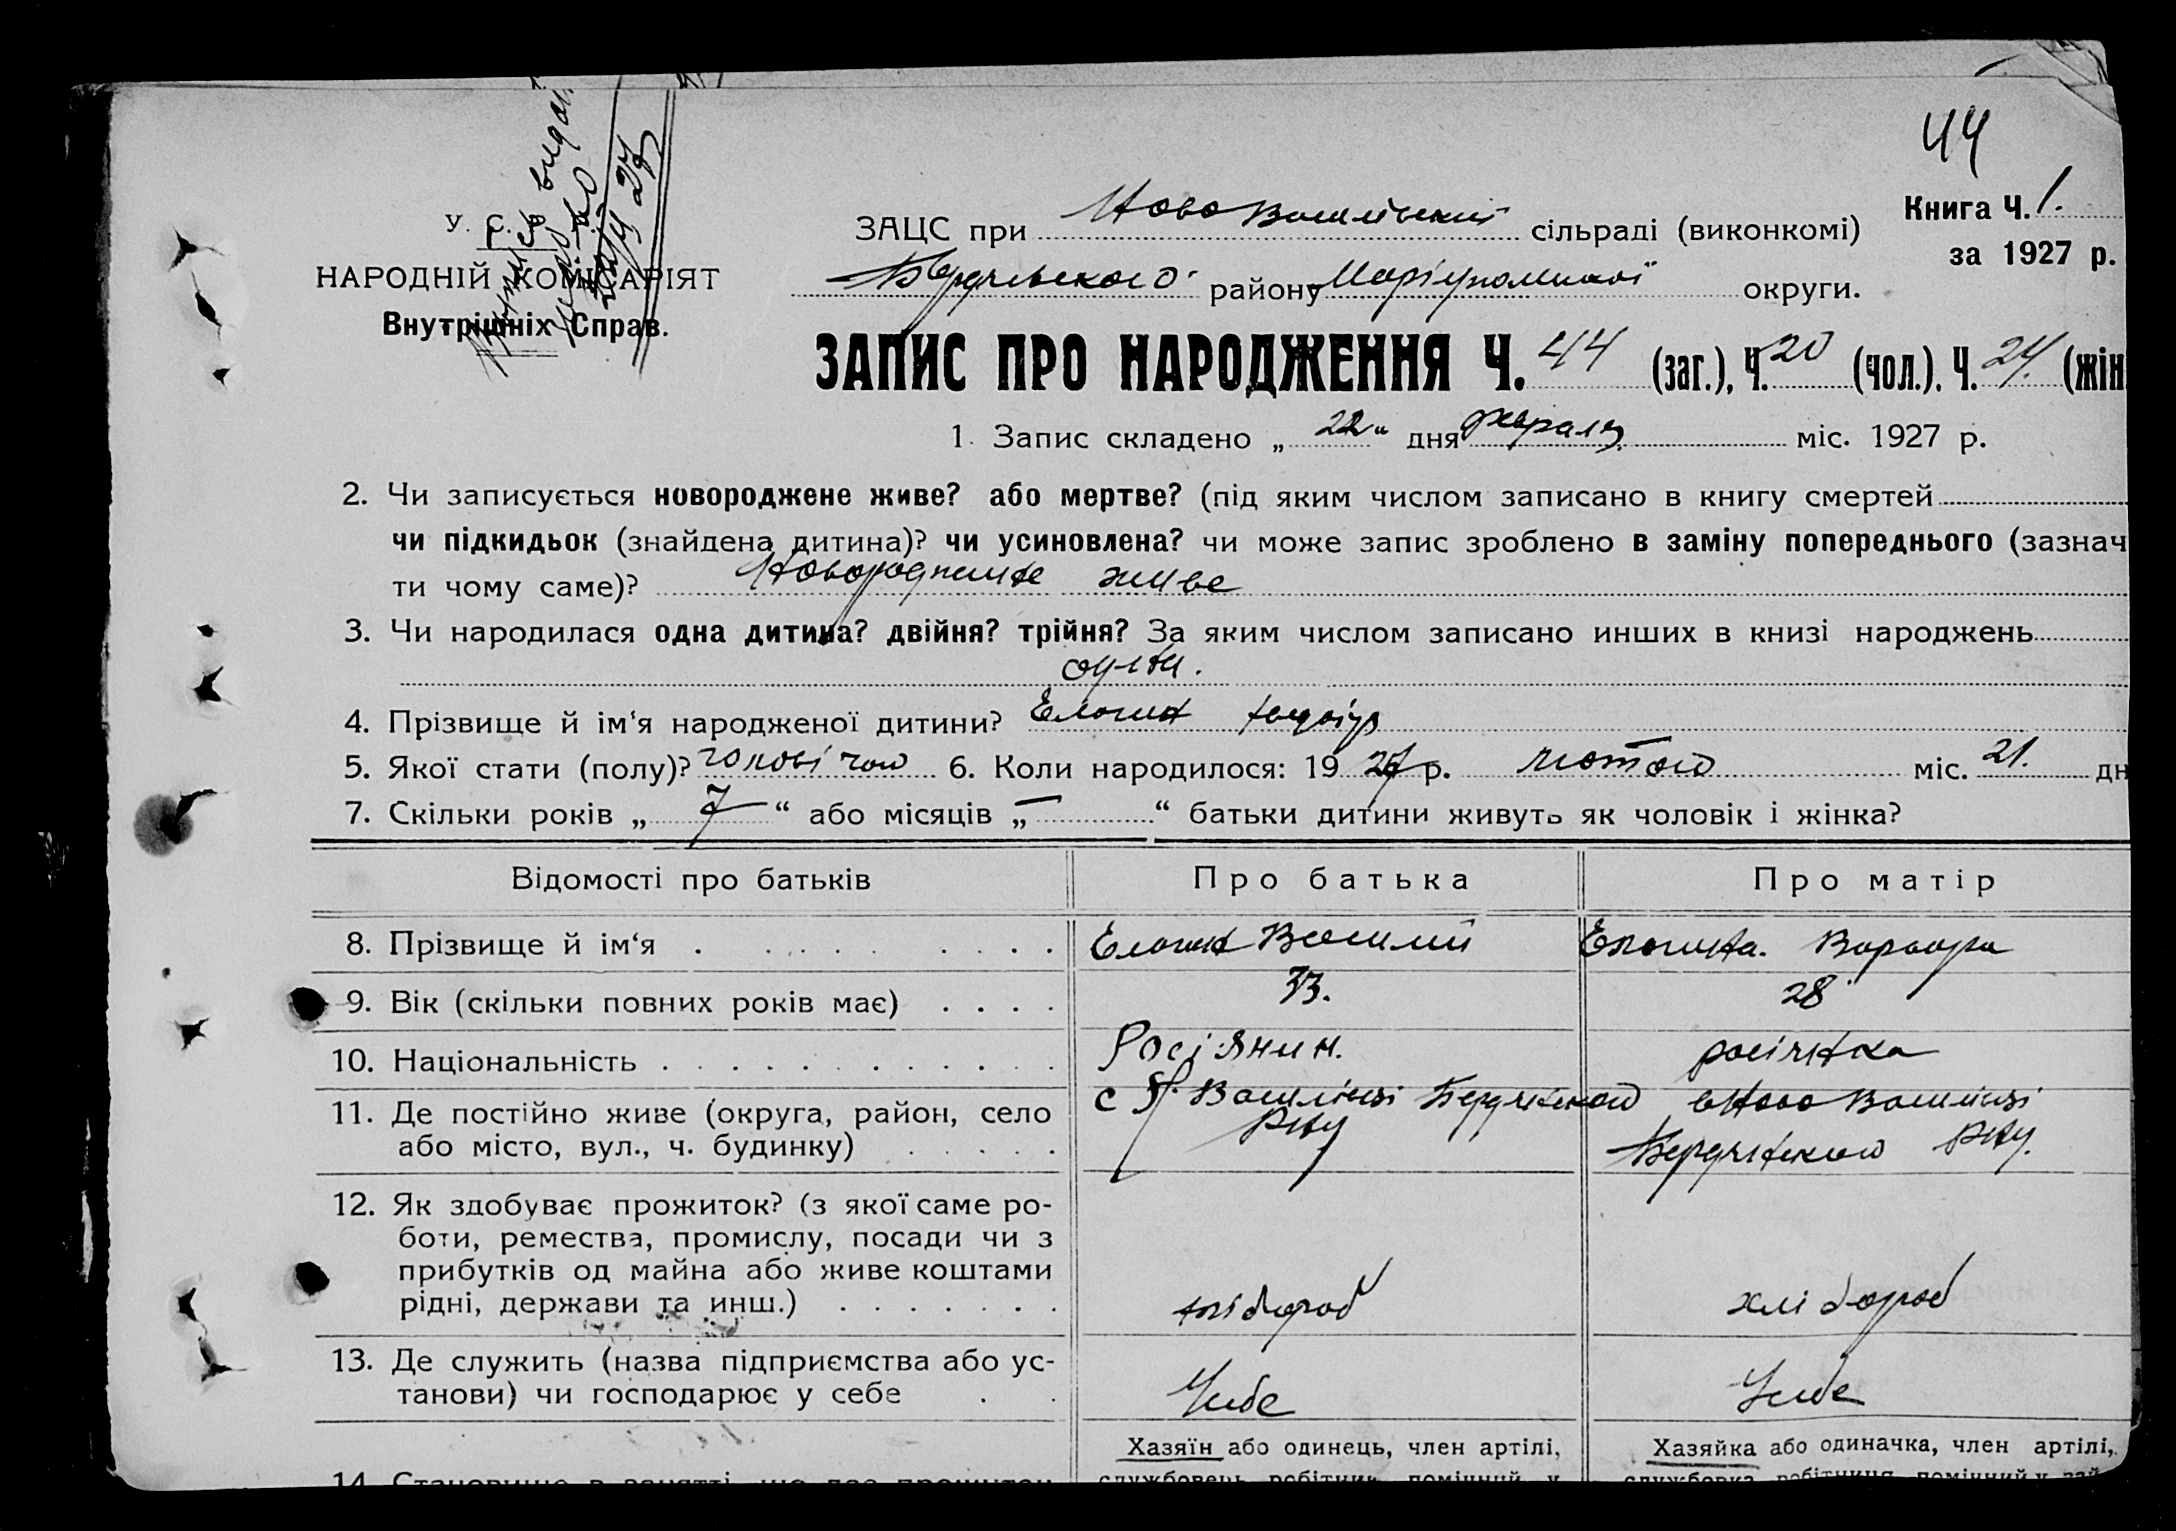 44
Книга Ч. 1.
за 1927 р.
У. С. Р. Р.
НАРОДНІЙ КОМІСАРІЯТ
Внутрішніх Справ.
ЗАЦС при Ново Василівській сільраді (виконкомі)
району Маріупольської округи.
ЗАПИС ПРО НАРОДЖЕННЯ Ч. 44 (заг.), Ч. 20 (чол.). Ч. 24. (жін
1. Запис складено „ 22 “ дня февраля міс. 1927 р.
2. Чи записується новороджене живе? або мертве? (під яким числом записано в книгу смертей
чи підкидьок (знайдена дитина)? чи усиновлена? чи може запис зроблено в заміну попереднього (зазнач
ти чому саме)? Новороджене живе
3. Чи народилася одна дитина? двійня? трійня? За яким числом записано инших в книзі народжень
одна.
4. Прізвище й ім‘я народженої дитини? Елагин
5. Якої стати (полу)? чоловічого 6. Коли народилося: 19 27 р. лютого міс. 21. дн
7. Скільки років „ 7 “ або місяців „ — “ батьки дитини живуть як чоловік і жінка?
Відомості про батьків Про батька Про матір
8. Прізвище й ім‘я Елагин Василий Елагина. Варвара
9. Вік (скільки повних років має) 33. 28
10. Національність Росіянин. росіянка
11. Де постійно живе (округа, район, село с Василівці Бердянського в Ново Василівці
або місто, вул., ч. будинку) Р-ну Бердянського Р-ну.
12. Як здобуває прожиток? (з якої саме ро-
боти, ремества, промислу, посади чи з
прибутків од майна або живе коштами
рідні, держави та инш.) хлібороб хлібороб
13. Де служить (назва підприємства або ус-
танови) чи господарює у себе У себе У себе
Хазяїн або одинець, член артілі, Хазяйка або одиначка, член артілі,
14. Становище в занятті, що дає прожиток службовець, робітник, помічний у службовка, робітниця, помічний у зай